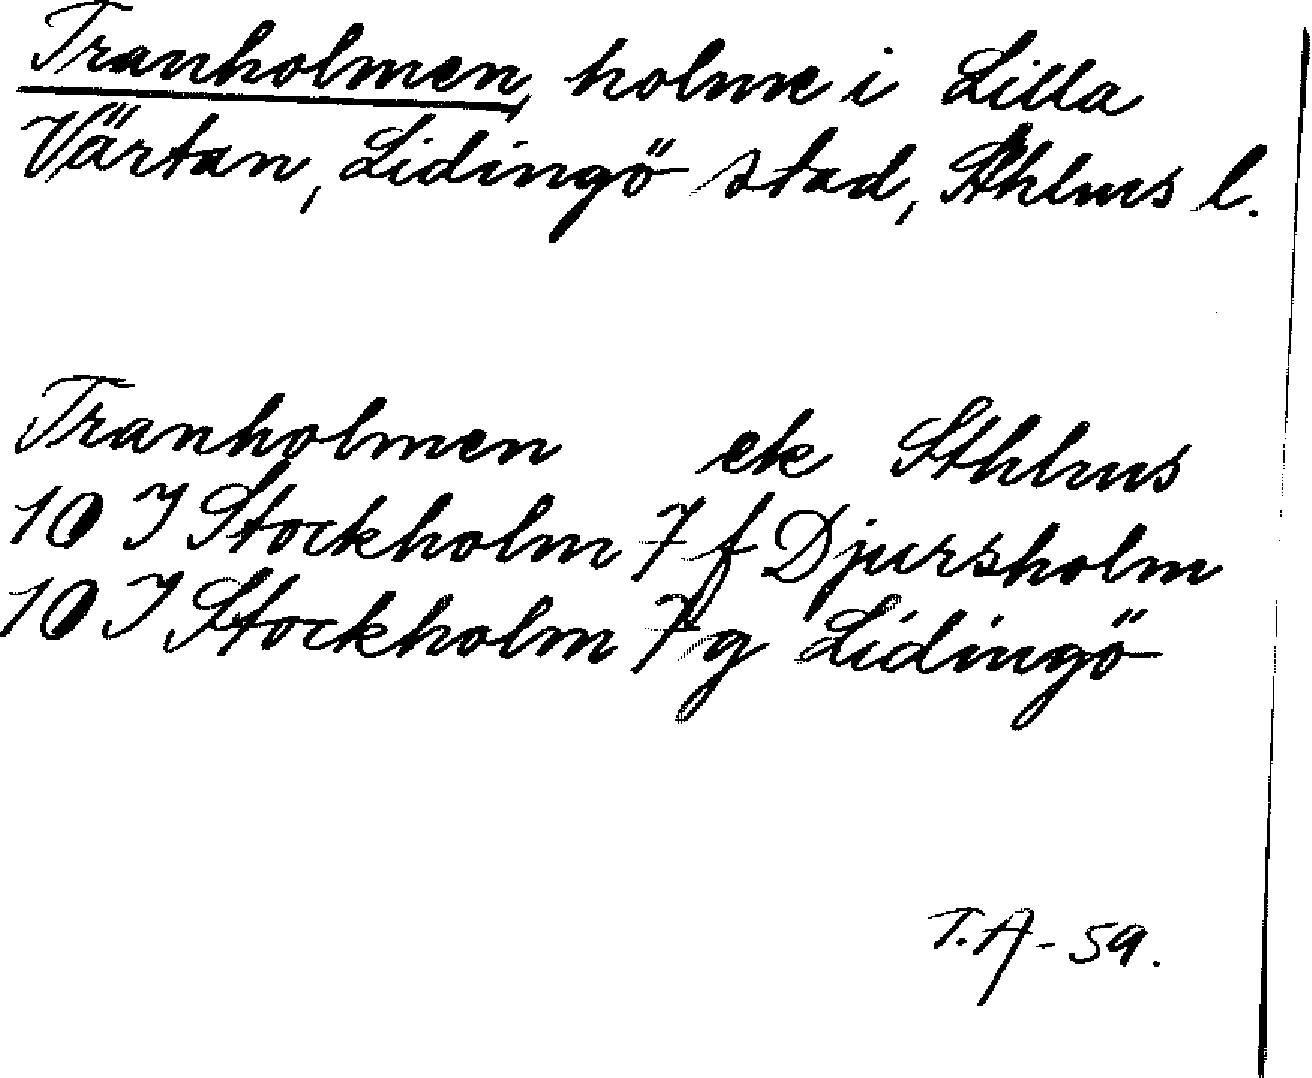 Tranholmen, holme i Lilla
Värtan, Lidingö stad, Sthlms l.
Tranholmen ek Sthlms
10 I Stockholm 7 f Djursholm
10 I Stockholm 7 g Lidingö
T.A - 59.